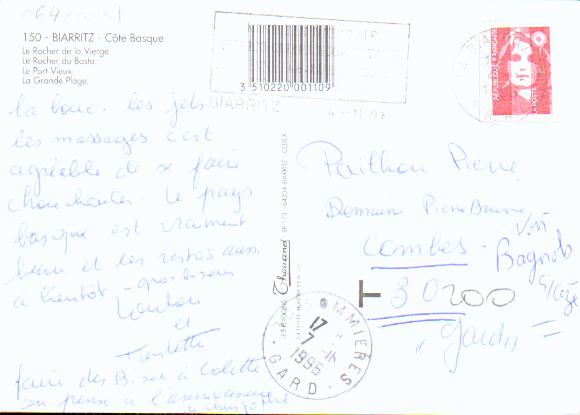 150 - BIARRITZ - Côte Basque
Le Rocher de la Vierge
Le Rocher du Basta
Le Port Vieux
La Grande Plage
3 510220 001109
BIARRITZ
RÉPUBLIQUE FRANÇAISE
LA POSTE
la boue. les jets
les massages c'est
agréable de se faire
chouchouter. le pays
basque est vraiment
beau et les restos aussi
à bientôt - gros bisous
Loulou
et
faire des Bises à Colette
on pense à
LES EDITIONS Thouand BP 173 - 64204 BIARRITZ CEDEX
Pierre
Domaine Pierre
Combes -
Voir
Bagnols
S/Cèze
T 30200
"Gard"
MMIÈRES
17
7 - 11
1996
GARD